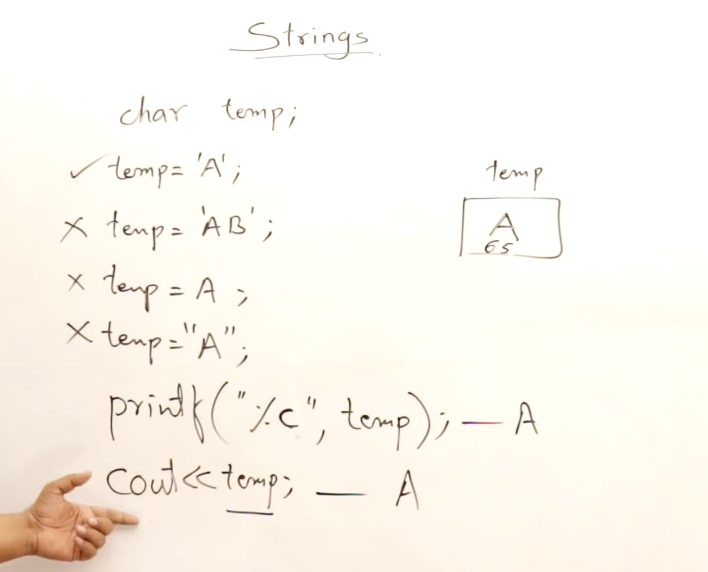 Strings
char temp;
✓ temp= 'A';
✗ temp= 'AB';
✗ temp = A ;
✗ temp="A";
printf("%c", temp); — A
cout<<temp; — A
temp
A
65